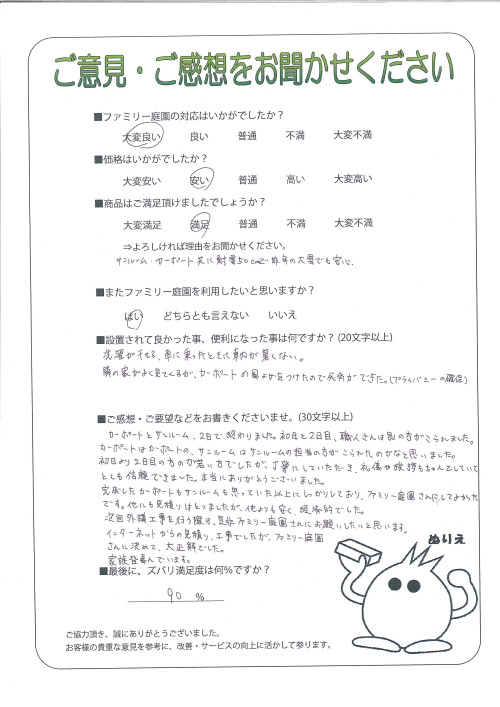 ご意見・ご感想をお聞かせください
■ファミリー庭園の対応はいかがでしたか？
大変良い 良い 普通 不満 大変不満
■価格はいかがでしたか？
大変安い 安い 普通 高い 大変高い
■商品はご満足頂けましたでしょうか？
大変満足 満足 普通 不満 大変不満
⇒よろしければ理由をお聞かせください。
サンルーム・カーポート共に耐雪50cmで昨年の大雪でも安心。
■またファミリー庭園を利用したいと思いますか？
はい どちらとも言えない いいえ
■設置されて良かった事、便利になった事は何ですか？(20文字以上)
洗濯が干せる、車に乗ったときに車内が暑くない。
隣の家がよく見えてくるが、カーポートの屋根をつけたので死角ができた。(プライバシーの確保)
■ご感想・ご要望などをお書きくださいませ。(30文字以上)
カーポートとサンルーム、2日で終わりました。初日と2日目、職人さんは別の方がこられました。
カーポートはカーポートの、サンルームはサンルームの担当の方がこられたのかなと思いました。
初日より2日目の方のが若い方でしたが、丁寧にしていただき、礼儀や挨拶もちゃんとしていて
とても信頼できました。本当にありがとうございました。
完成したカーポートもサンルームも思っていた以上にしっかりしており、ファミリー庭園さんにしてよかった
です。他にも見積りはとりましたが、他よりも安く、経済的でした。
次回外構工事を行う際は、是非ファミリー庭園さんにお願いしたいと思います。
インターネットからの見積り、工事でしたが、ファミリー庭園
さんに決めて、大正解でした。
家族皆喜んでいます。
■最後に、ズバリ満足度は何％ですか？
90 %
ぬりえ
ご協力頂き、誠にありがとうございました。
お客様の貴重な意見を参考に、改善・サービスの向上に活かして参ります。